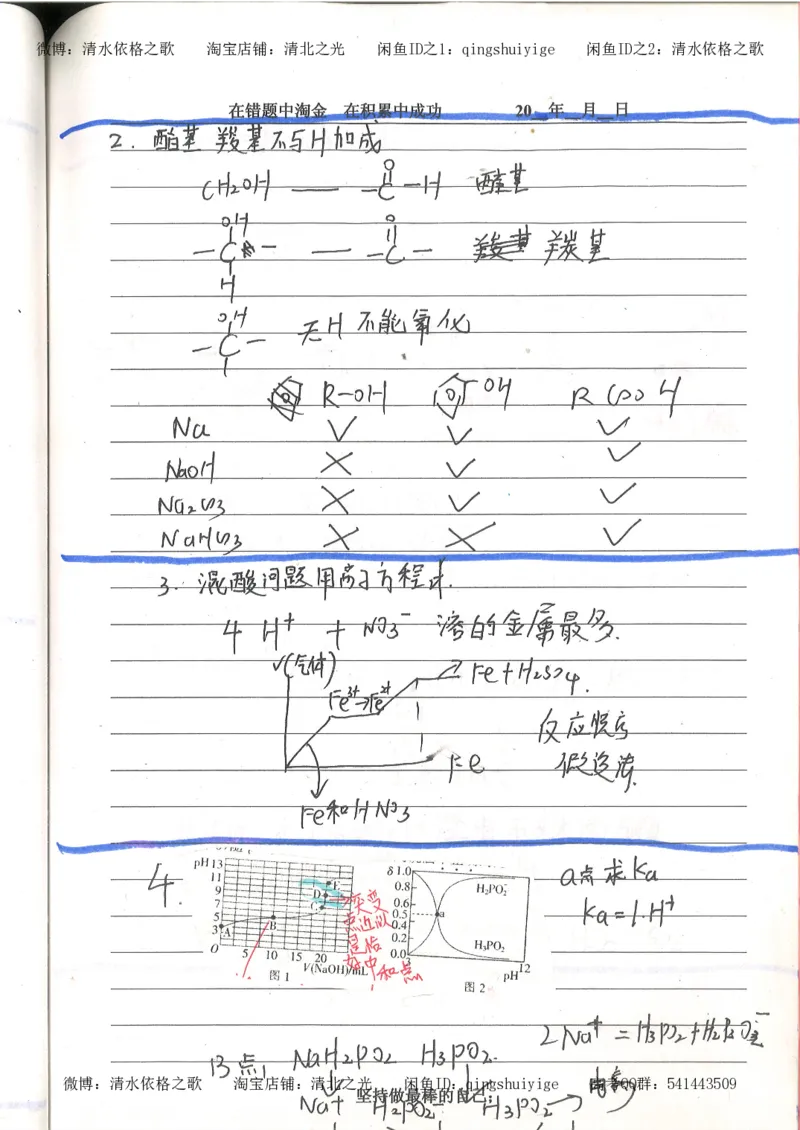 微博：清水依格之歌 淘宝店铺：清北之光 闲鱼ID之1：qingshuiyige 闲鱼ID之2：清水依格之歌
在错题中淘金 在积累中成功 20 年 月 日
2. 酯基 羧基不与H加成
CH2OH —— -C-H 醛基
O
OH O
-C- —— -C- 羰基
H
OH
-C- 无H 不能氧化
R-OH OH RCOOH
Na ✓ ✓ ✓
NaOH × ✓ ✓
Na2CO3 × ✓ ✓
NaHCO3 × × ✓
3. 混酸问题用离子方程式.
4H+ + NO3- 溶的金属最多.
V(气体)
Fe3+→Fe2+
Fe+H2SO4.
反应
假设法
Fe
Fe和HNO3
4.
pH 13 11 9 7 5 3
A B C D E
O 5 10 15 20
V(NaOH)/mL
图 1
突变
点近以
是恰
好中和点
δ 1.0 0.8 0.6 0.5 0.4 0.2 0.0
H2PO2-
a
H3PO2
3 pH 12
图 2
a点求Ka
Ka=1·H+
2Na+ = H3PO2+H2PO2-
B点 NaH2PO2 H3PO2.
微博：清水依格之歌 淘宝店铺：清北之光 闲鱼ID：qingshuiyige QQ群：541443509
坚持做最棒的自己
Na+ H2PO2- H3PO2→